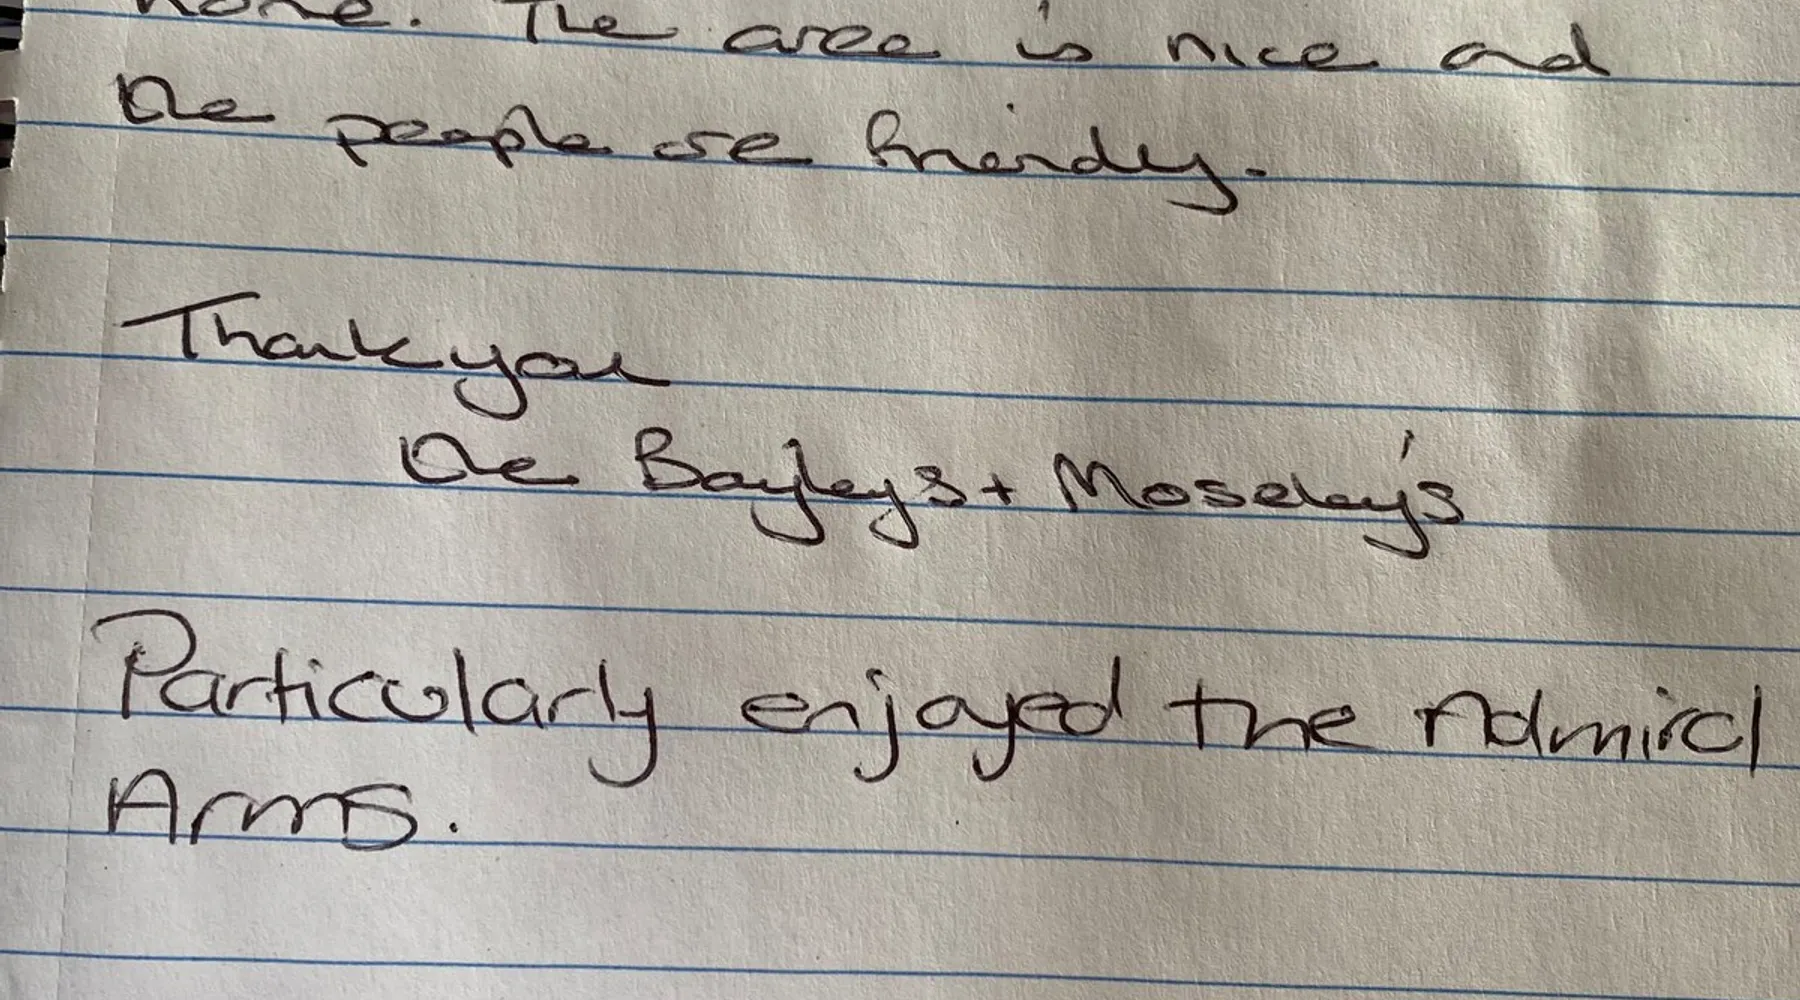 home. The area is nice and
the people are friendly.
Thank you
The Bayleys + Moseley's
Particularly enjoyed the Admiral
Arms.